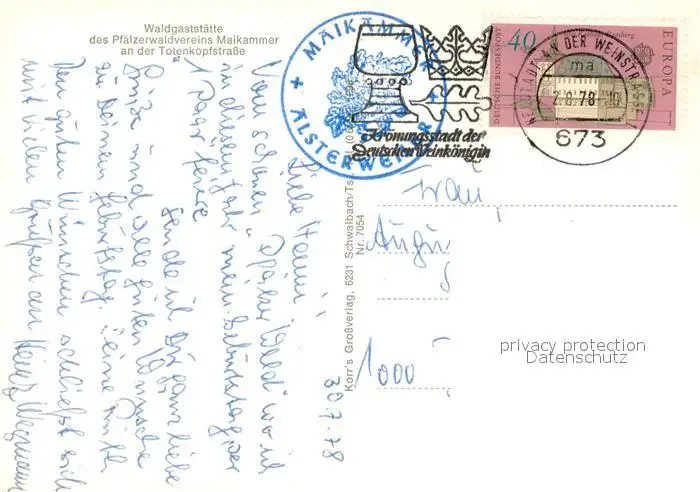 Waldgaststätte
des Pfälzerwaldvereins Maikammer
an der Totenkopfstraße
MAIKAMMER
+ ALSTERWEILER +
Krönungsstadt der
Deutschen Weinkönigin
40
DEUTSCHE BUNDESPOST
EUROPA
NEUSTADT AN DER WEINSTRASSE 1
ma
2.8.78
673
Korr's Großverlag, 6231 Schwalbach/Ts
Nr. 7054
30.7.78
Liebe
Vom schönen "Pfälzer Wald" wo ich
in diesem Jahr mein Geburtstag
1 Paar Ferien
sende ich Dir ganz liebe
Grüße und alle guten Wünsche
zu Deinem Geburtstag.
Den guten Wünschen schließt sich
mit vielen Grüßen an Heinz Wegmann
Frau
Augu
1000
privacy protection
Datenschutz